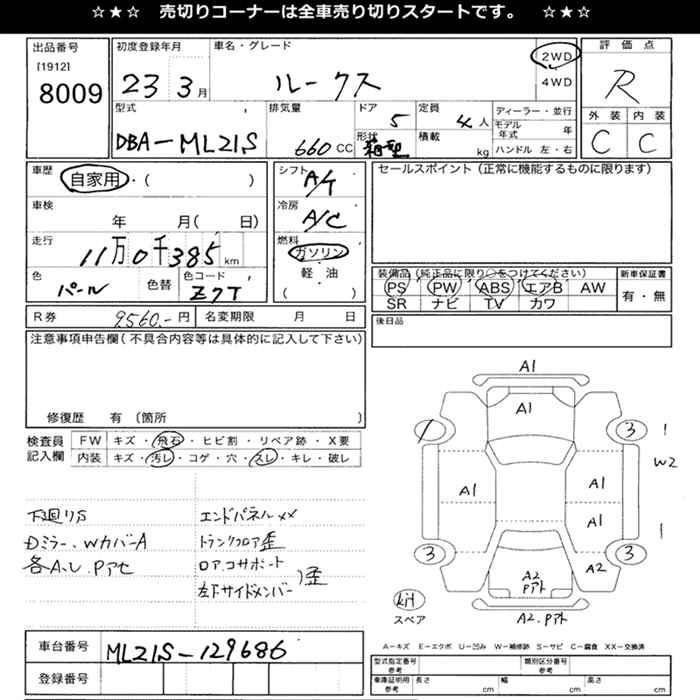 ☆★☆ 売切りコーナーは全車売り切りスタートです。 ☆★☆
出品番号
[1912]
8009
初度登録年月
23 3月
車名・グレード
ルークス
2WD
4WD
評価点
R
外装 内装
C C
型式
DBA-ML21S
排気量
660 CC
ドア
5
形状
箱型
定員
4人
積載
kg
ディーラー・並行
モデル年式 年
ハンドル 左・右
車歴
自家用・( )
車検
年 月( 日)
走行
11万0千385 km
色
パール
色替
色コード
Z7T
シフト
A/T
冷房
A/C
燃料
ガソリン
軽油
( )
セールスポイント(正常に機能するものに限ります)
装備品(純正品に限り○をつけてください)
PS PW ABS エアB AW
SR ナビ TV カワ
新車保証書
有・無
R券 9560.-円
名変期限 月 日
後日品
注意事項申告欄(不具合内容等は具体的に記入して下さい)
修復歴 有 (箇所 )
検査員
記入欄
FW キズ・飛石・ヒビ割・リペア跡・X要
内装 キズ・汚レ・コゲ・穴・スレ・キレ・破レ
下廻りS
Dミラー、WカバーA
各A、U、Pアセ
エンドパネルXX
トランクフロア歪
ロアコサポート
左下サイドメンバー
歪
A1
A1
3
1
W2
A1
A1
A1
1
3
3
A2
A2
Pアト
A2.Pアト
kit
スペア
A-キズ E-エクボ U-凹み W-補修跡 S-サビ C-腐食 XX-交換済
車台番号
ML21S-129686
登録番号
型式指定番号
参考
類別区分番号
参考
車庫証明用
参考
長さ cm
幅 cm
高さ cm